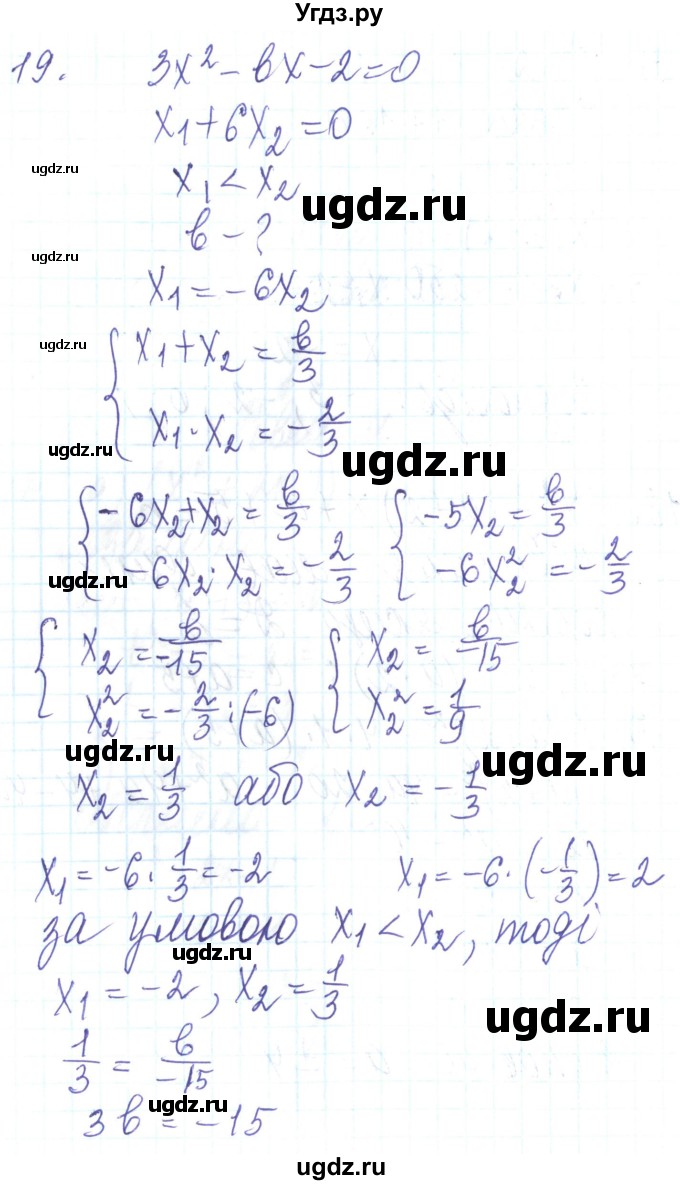 Угдз.ру
19. 3x² - bx - 2 = 0
x₁ + 6x₂ = 0
ugdz.ru
x₁ < x₂
ugdz.ru
b - ?
ugdz.ru
x₁ = -6x₂
ugdz.ru
{ x₁ + x₂ = b/3
x₁ · x₂ = -2/3
ugdz.ru
ugdz.ru
{ -6x₂ + x₂ = b/3 { -5x₂ = b/3
-6x₂ · x₂ = -2/3 -6x₂² = -2/3
ugdz.ru
{ x₂ = b/-15 { x₂ = b/-15
x₂² = -2/3 : (-6) x₂² = 1/9
ugdz.ru
ugdz.ru
x₂ = 1/3 або x₂ = -1/3
ugdz.ru
x₁ = -6 · 1/3 = -2 x₁ = -6 · (-1/3) = 2
за умовою x₁ < x₂, тоді
ugdz.ru
x₁ = -2, x₂ = 1/3
ugdz.ru
1/3 = b/-15
ugdz.ru
3b = -15
ugdz.ru